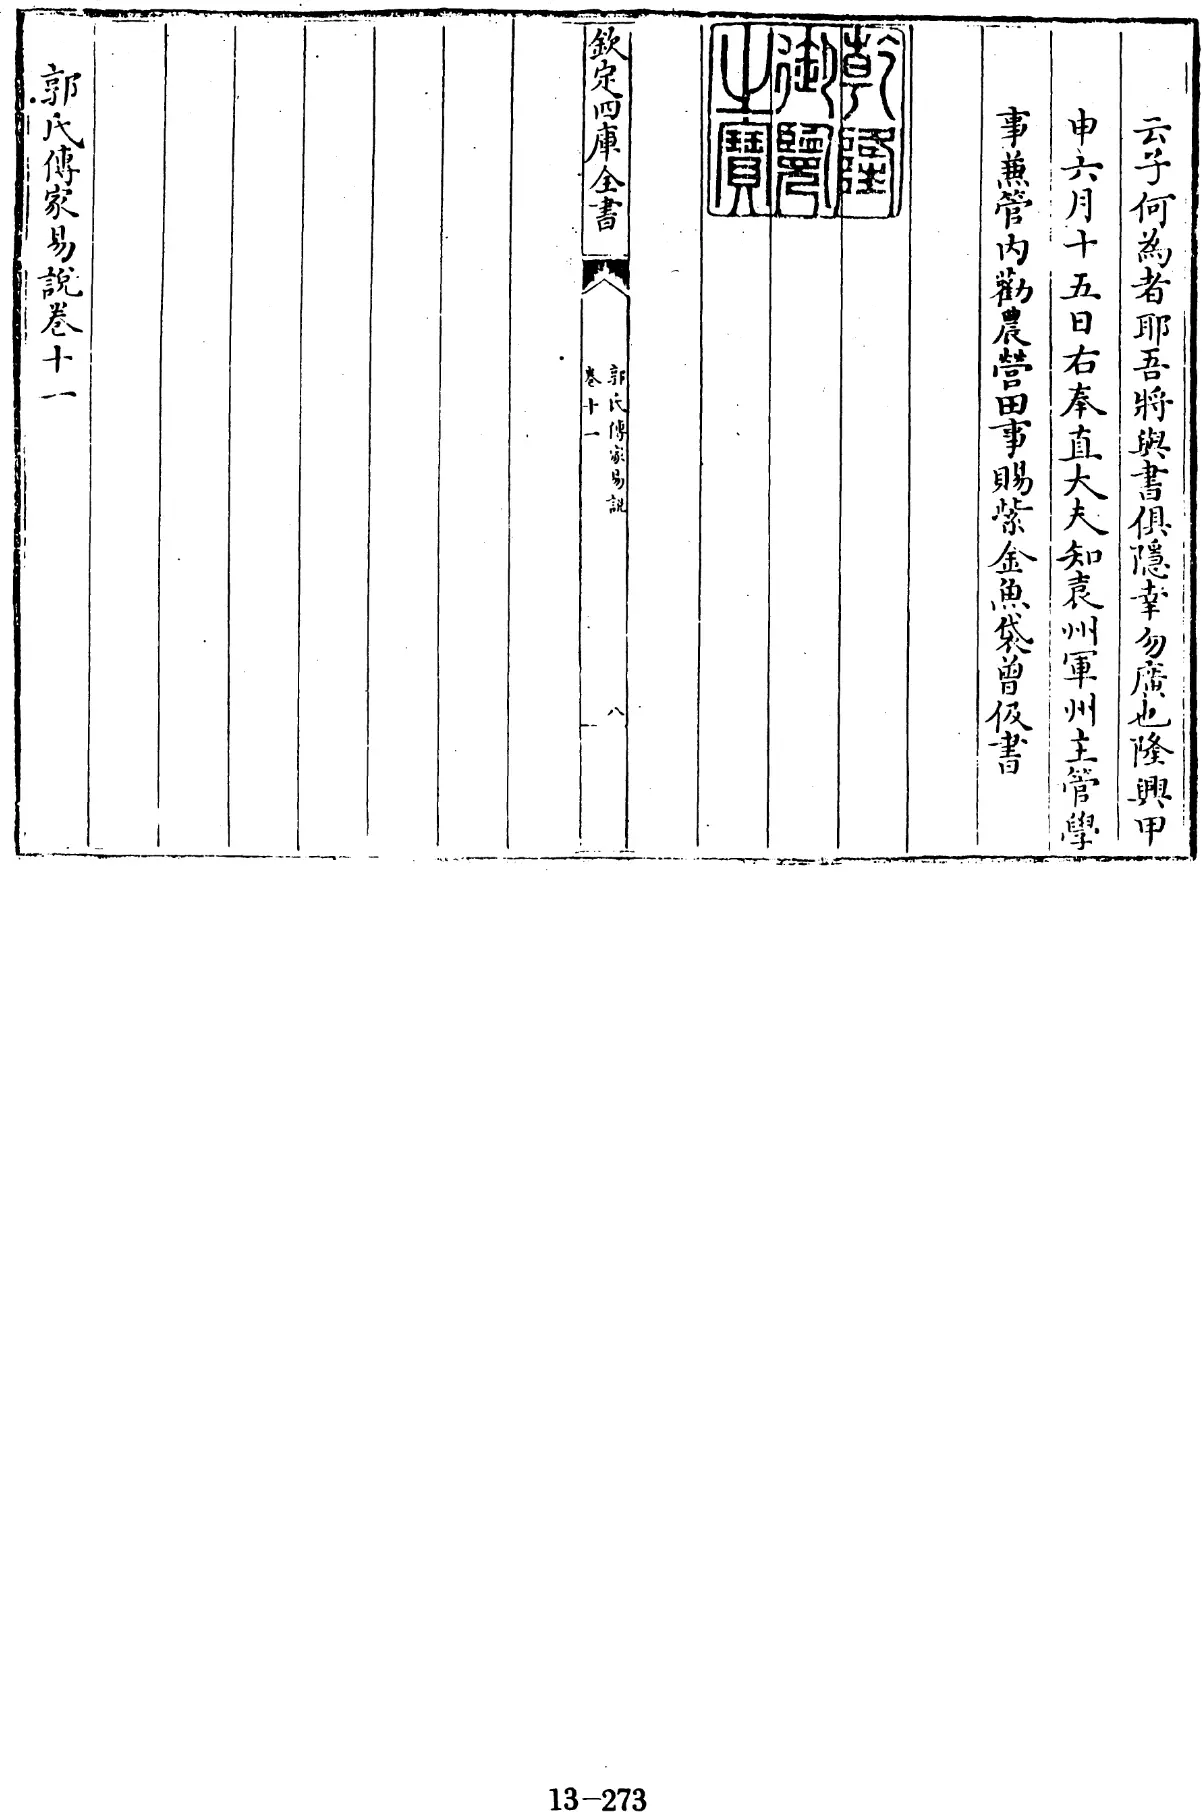 云子何為者耶吾將與書俱隱幸勿廣也隆興甲
申六月十五日右奉直大夫知袁州軍州主管學
事兼管内勸農營田事賜紫金魚袋曾伋書
乾隆
御覽
之寶
欽定四庫全書
郭氏傳家易說
卷十一
八
郭氏傳家易說卷十一
13-273